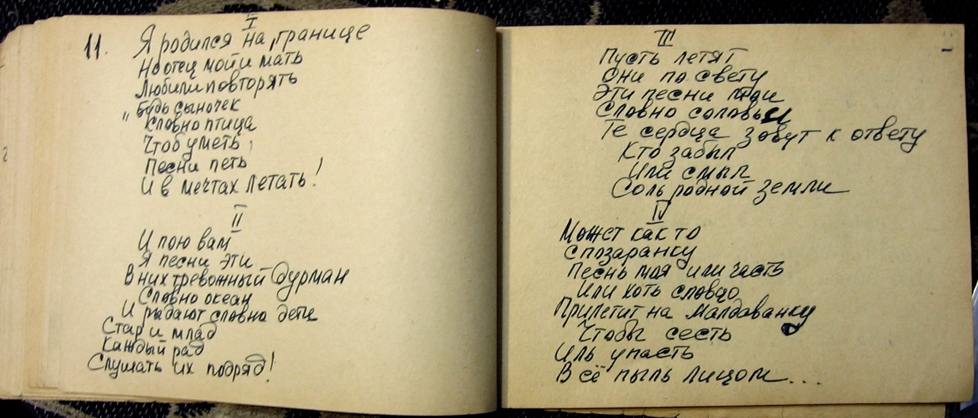 I
11. Я родился на границе
Но отец мой и мать
Любили повторять
"Будь сыночек
Словно птица
Чтоб уметь,
Песни петь
И в мечтах летать!
II
И пою вам
Я песни эти
В них тревожный дурман
Словно океан
И рыдают словно дети
Стар и млад
Каждый рад
Слушать их подряд!
III
Пусть летят
Они по свету
Эти песни мои
Словно соловьи
Те сердца зовут к ответу
Кто забыл
Или смыл
Соль родной земли
IV
Может как то
Спозаранку
Песнь моя или часть
Или хоть словцо
Прилетит на Малдаванку
Чтобы сесть
Иль упасть
В сё пыль лицом...